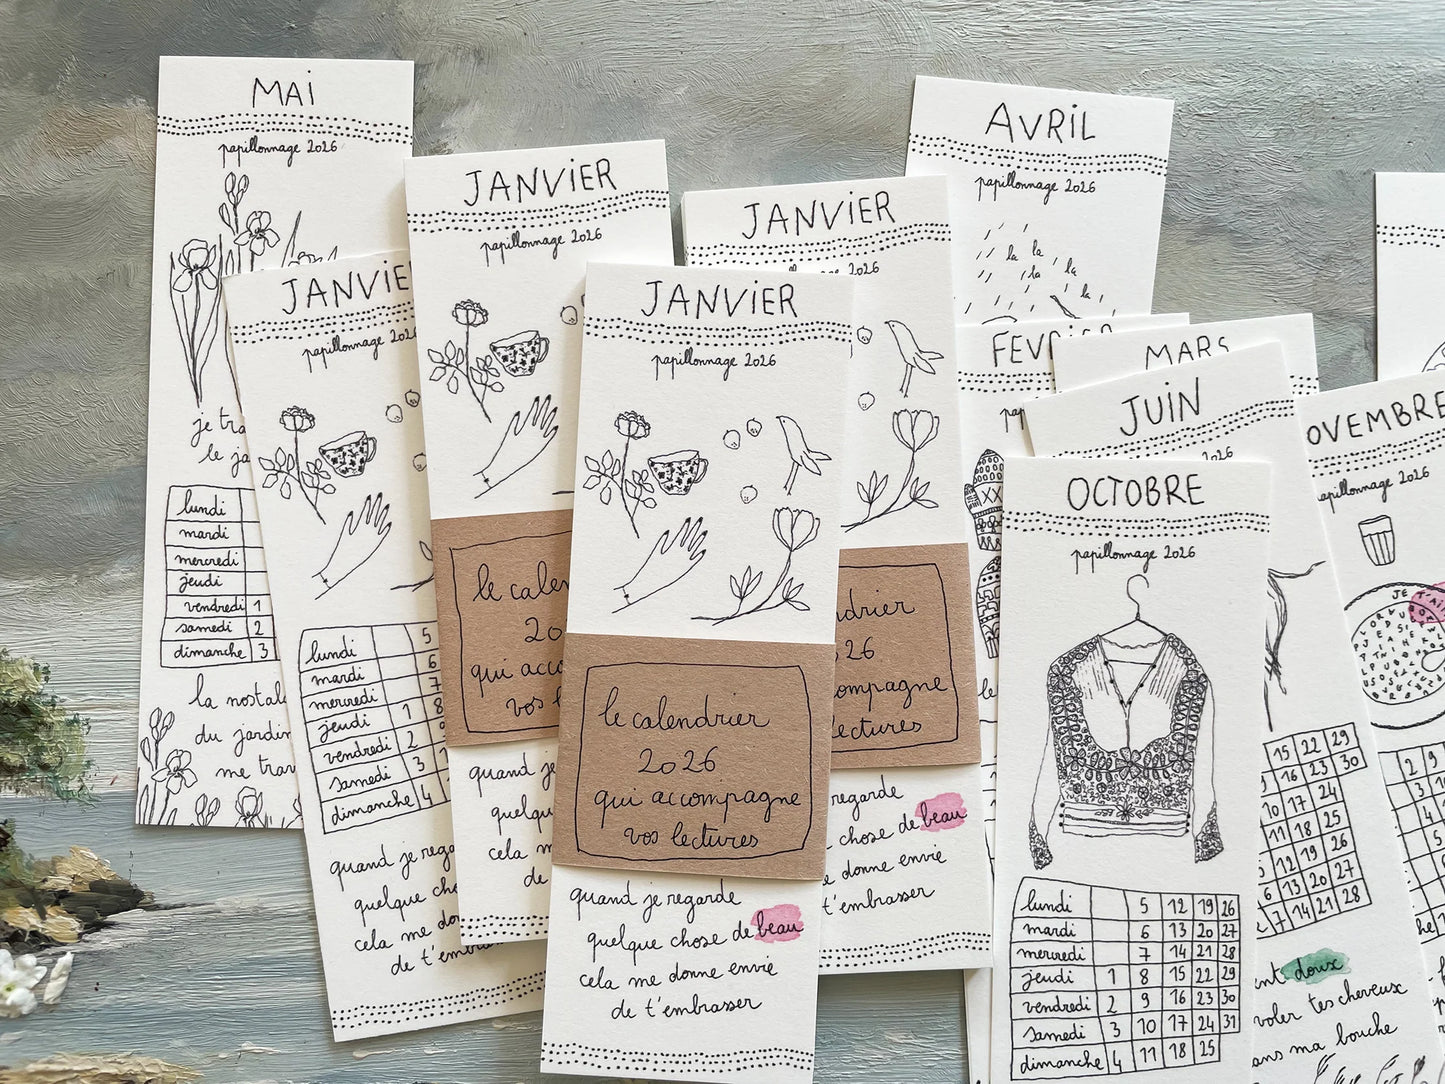 MAI
papillonnage 2026
je
le
lundi
mardi
mercredi
jeudi
vendredi 1
samedi 2
dimanche 3
la
du jardin
me
JANVIE
papillonnage
lundi 5
mardi 6
mercredi 7
jeudi 1 8
vendredi 2
samedi 3
dimanche 4
quand je
quelque
cela me
de t'
JANVIER
papillonnage 2026
le
20
qui
vos
quand je
quelqu
cela
de
JANVIER
papillonnage 2026
le calendrier
2026
qui accompagne
vos lectures
quand je regarde
quelque chose de beau
cela me donne envie
de t'embrasser
JANVIER
2026
drier
26
ompagne
lectures
regarde
chose de beau
donne envie
t'embrasser
AVRIL
papillonnage 2026
la la
la la
la
FEVRIER
MARS
JUIN
2026
15 22 29
16 23 30
10 17 24
11 18 25
12 19 26
6 13 20 27
7 14 21 28
doux
voler tes cheveux
ans ma bouche
OCTOBRE
papillonnage 2026
lundi 5 12 19 26
mardi 6 13 20 27
mercredi 7 14 21 28
jeudi 1 8 15 22 29
vendredi 2 9 16 23 30
samedi 3 10 17 24 31
dimanche 4 11 18 25
OVEMBRE
papillonnage 2026
JE T'AI
2 9
3
4